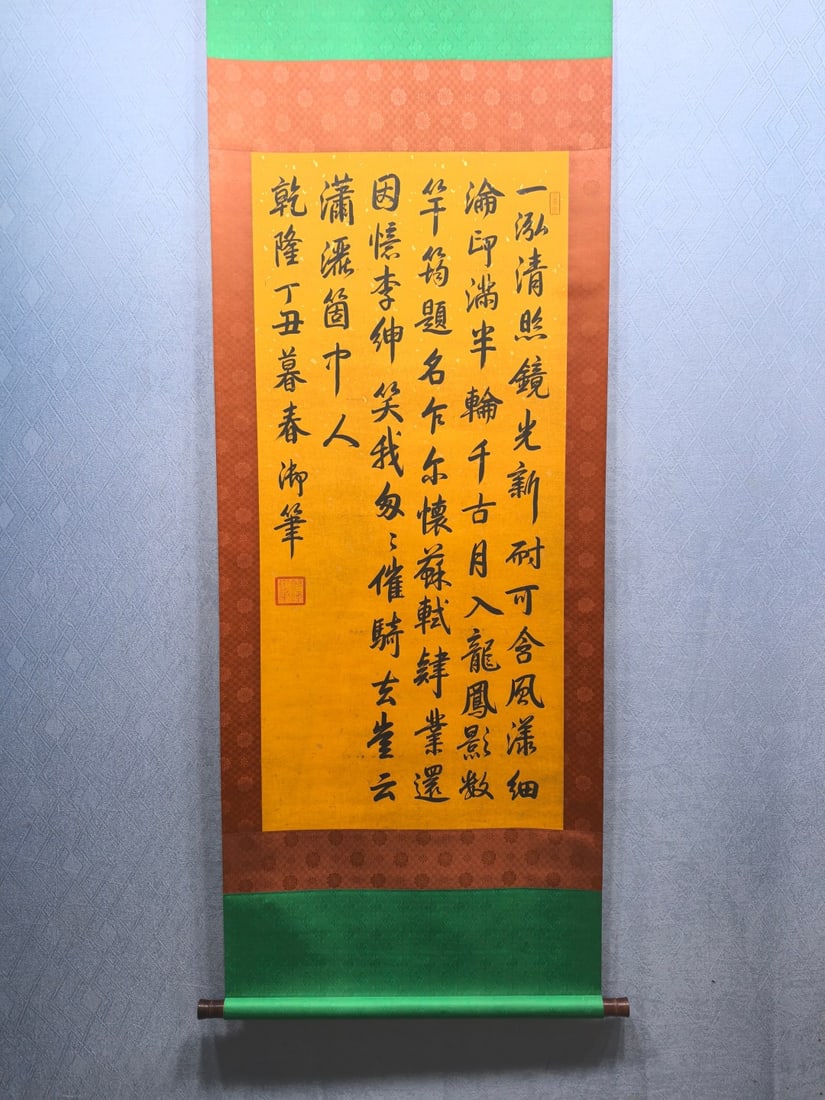 一泓清照鏡光新耐可含風漾細
淪印滿半輪千古月入龍鳳影数
竿筠題名乍尔懷蘇軾肄業還
因憶李紳笑我匆〻催騎去豈云
瀟灑箇中人
乾隆丁丑暮春御筆